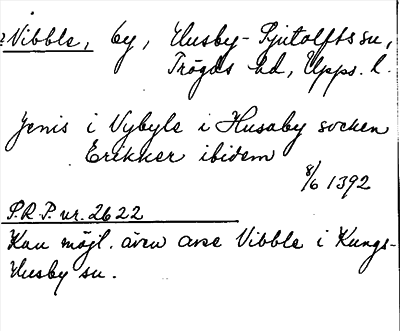 ?Vibble, by, Husby-Sjutolfts sn,
Trögds hd, Upps. l.
Jenis i Vybyle i Husaby socken
Erikker ibidem
8/6 1392
S.R.P. nr. 2622
Kan möjl. även avse Vibble i Kungs-
Husby sn.